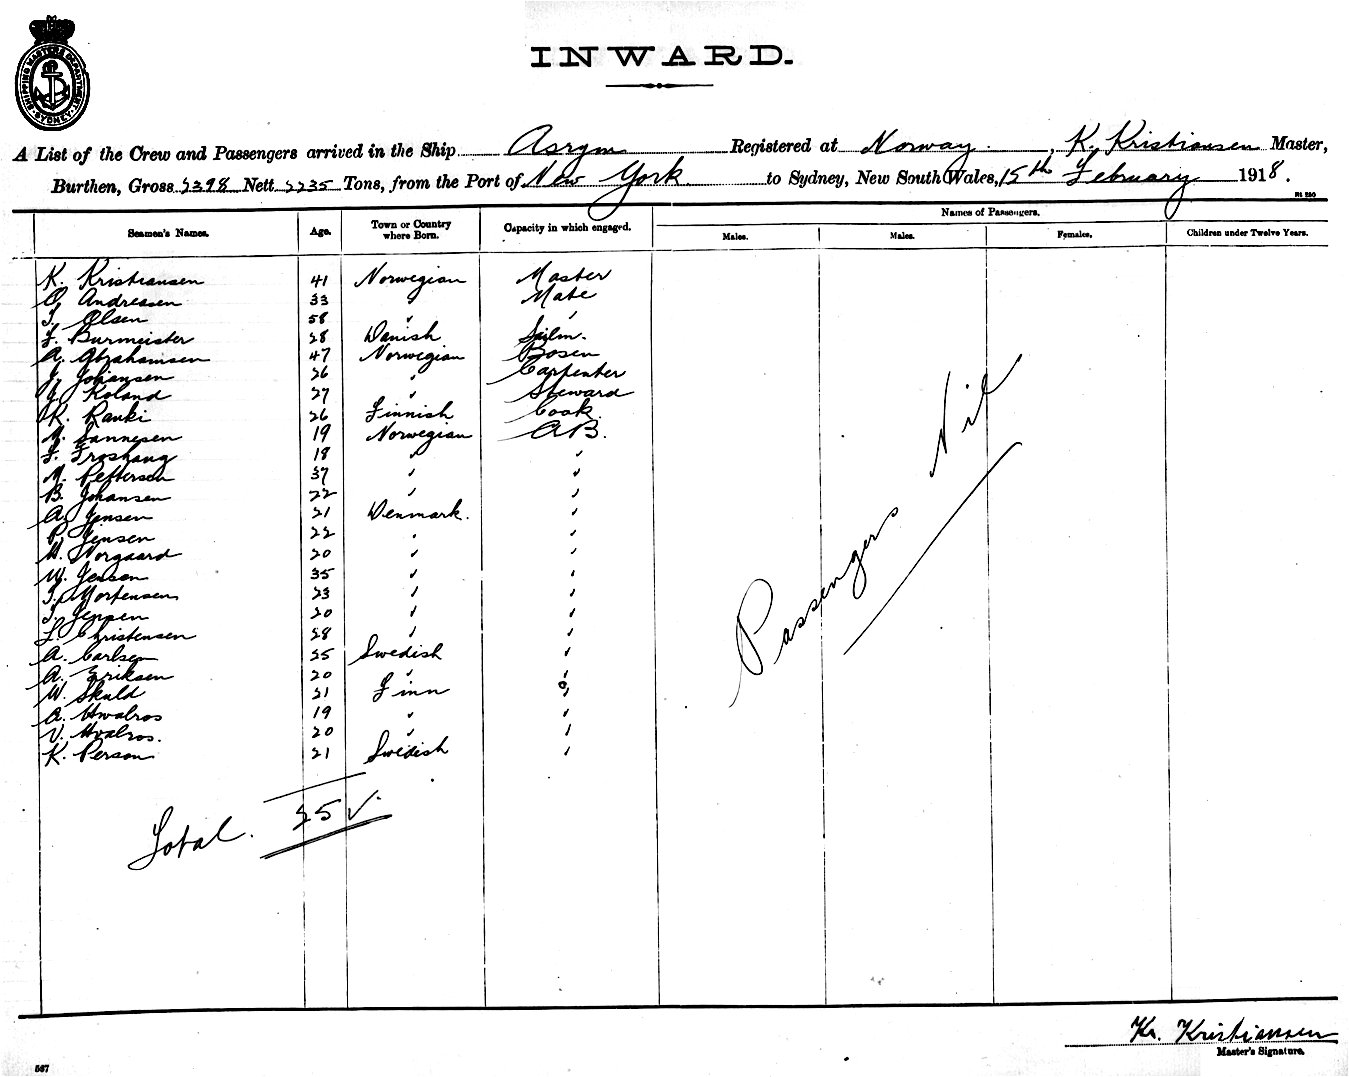 SHIPPING MASTERS DEPARTMENT
SYDNEY
INWARD.
A List of the Crew and Passengers arrived in the Ship Asrym Registered at Norway, K. Kristiansen Master,
Burthen, Gross 2398 Nett 2235 Tons, from the Port of New York to Sydney, New South Wales, 15th February 1918.
Names of Passengers.
Seamen's Names. Age. Town or Country where Born. Capacity in which engaged. Males. Males. Females. Children under Twelve Years.
K. Kristiansen 41 Norwegian Master
O. Andreasen 33 " Mate
T. Olsen 58 " "
F. Burmeister 28 Danish Sailm.
A. Abrahamsen 47 Norwegian Bosen
J. Johansen 26 " Carpenter
Roland 27 " Steward
K. Ranki 26 Finnish Cook
Sannesen 19 Norwegian AB.
F. Froshaug 18 " "
M. Pettersen 37 " "
B. Johansen 22 " "
A. Jensen 21 Denmark. "
P. Jensen 22 " "
Norgaard 20 " "
W. Jensen 35 " "
T. Mortensen 23 " "
T. Jeppen 20 " "
L. Christensen 28 " "
A. Carlsen 25 Swedish "
A. Eriksen 20 " "
W. Skuld 21 Finn "
A. Hwalros 19 " "
V. Hvalros. 20 " "
K. Person 21 Swedish "
Passengers Nil
Total. 25
Kr. Kristiansen
Master's Signature.
567